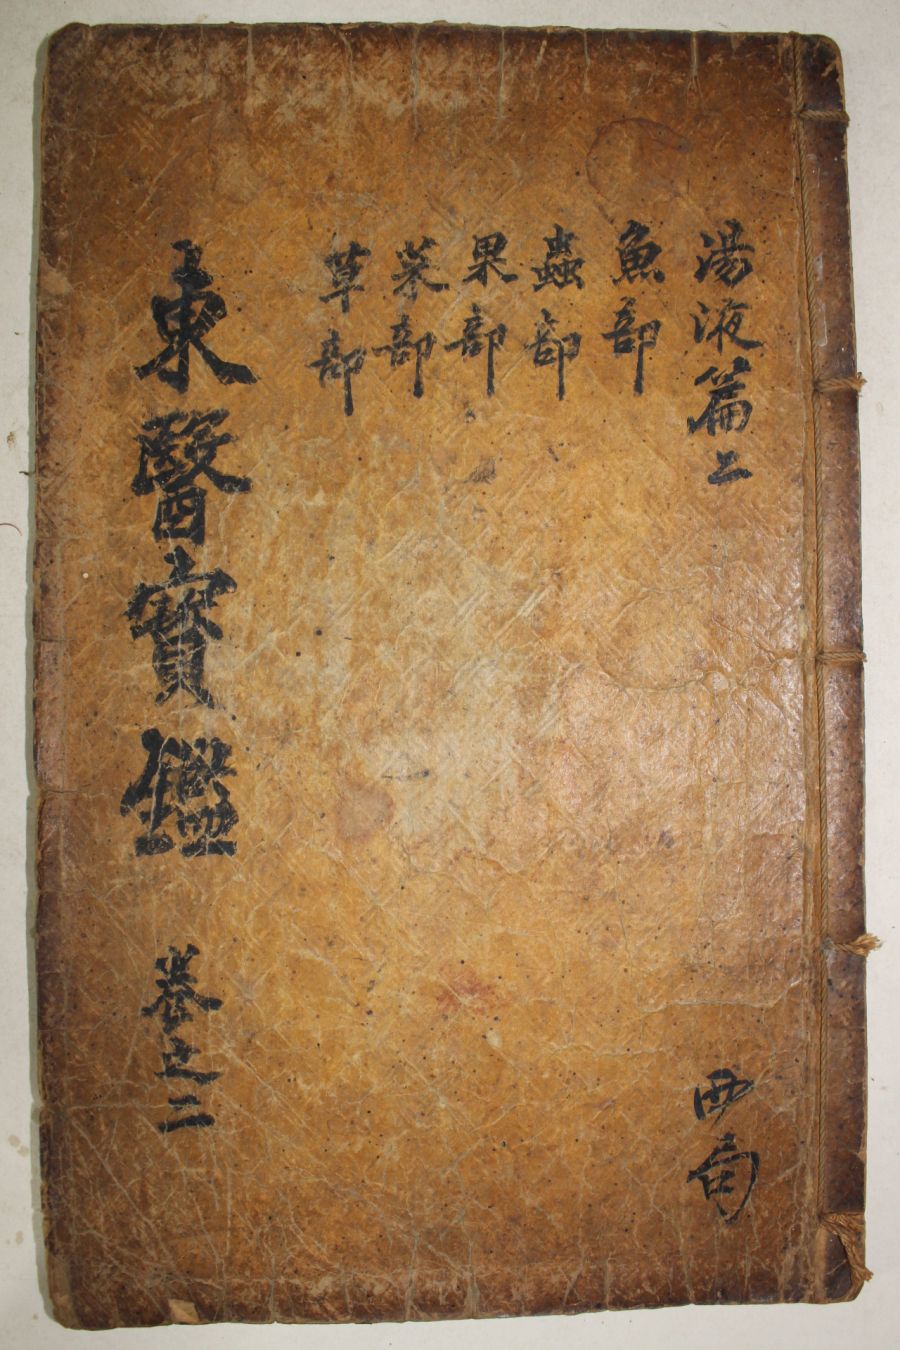 湯液篇二
魚部
蟲部
果部
菜部
草部
東醫寶鑑 卷之二